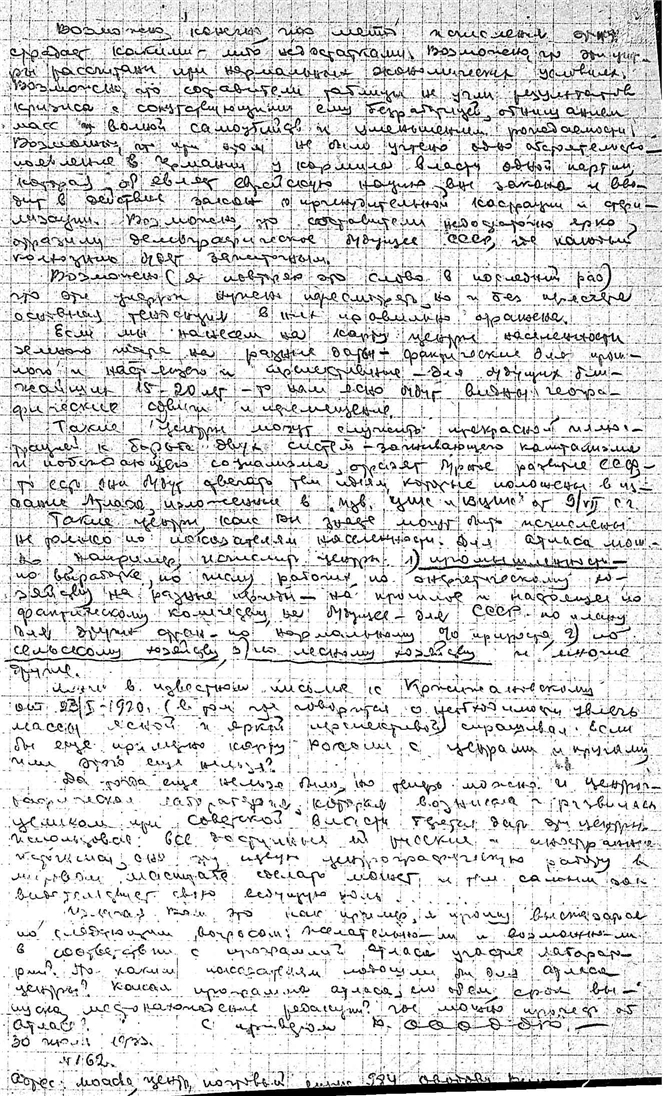 Возможно, конечно, что метод исчисления
страдает какими-либо недостатками. Возможно, что эти циф-
ры рассчитаны при нормальных экономических условиях.
Возможно, что составители таблицы не учли результатов
кризиса с сопутствующими ему безработицей, обнищанием
масс волной самоубийств и уменьшением рождаемости.
Возможно, что при этом не было учтено одно обстоятельство
появление в Германии у кормила власти одной партии,
которая объявляет еврейскую нацию вне закона и вво-
дит в действие законы о принудительной кастрации и стери-
лизации. Возможно, что составители недостаточно ярко
отразили демографическое будущее СССР, где
будет зажиточным.
Возможно (я повторяю это слово в последний раз)
что эти цифры нужно пересмотреть, но и без пересчета
основная тенденция в них правильно отражена.
Если мы нанесем на карту центры населенности
земного шара на разные даты - фактические для прош-
лого и настоящего и перспективные - для будущих бли-
жайших 15-20 лет - то нам ясно будут видны геогра-
фические сдвиги и перемещение.
Такие центры могут служить прекрасной иллюс-
трацией к борьбе двух систем - загнивающего капитализма
и побеждающего социализма, отразят бурное развитие СССР -
то есть они будут отвечать тем идеям, которые положены в из-
дание Атласа, изложенные в изв. ЦИК и ВЦИК от 9/VII с.г.
Такие центры, как Вы знаете могут быть исчислены
не только по показателям населенности. Для атласа мож-
но например, исчислить центры 1) промышленности -
по выработке, по числу рабочих, по энергетическому хо-
зяйству на разные периоды - на прошлое и настоящее по
фактическому количеству, на будущее - для СССР по плану
для других стран - по нормальному его приросту, 2) по
сельскому хозяйству, 3) по лесному хозяйству и многие
другие.
Ленин в известном письме к Кржижановскому
от 23/I-1920. (в том где говорится о необходимости увлечь
массы ясной и яркой перспективой) спрашивал: если
бы еще примерно карту России с центрами и кругами,
или этого еще нельзя?
Да тогда еще нельзя было, но теперь можно. И центро-
графическая лаборатория, которая возникла и развилась
целиком при Советской власти
использовав все доступные ей русские и иностранные
центрографическую работу в
мировом масштабе сделать может, и тем самым
свою ведущую роль.
Вам это как пример, я прошу высказаться
по следующим вопросам: желательно-ли и возможно-ли
в соответствии с программой атласа участие лаборато-
рии? По каким показателям подошли бы для атласа
центры? Какая программа атласа, его объем, срок вы-
пуска, местонахождение редакции? Где можно прочесть об
Атласе? С приветом
30 июля 1933.
№162.
Адрес: Москва, центр, почтовый ящик 934